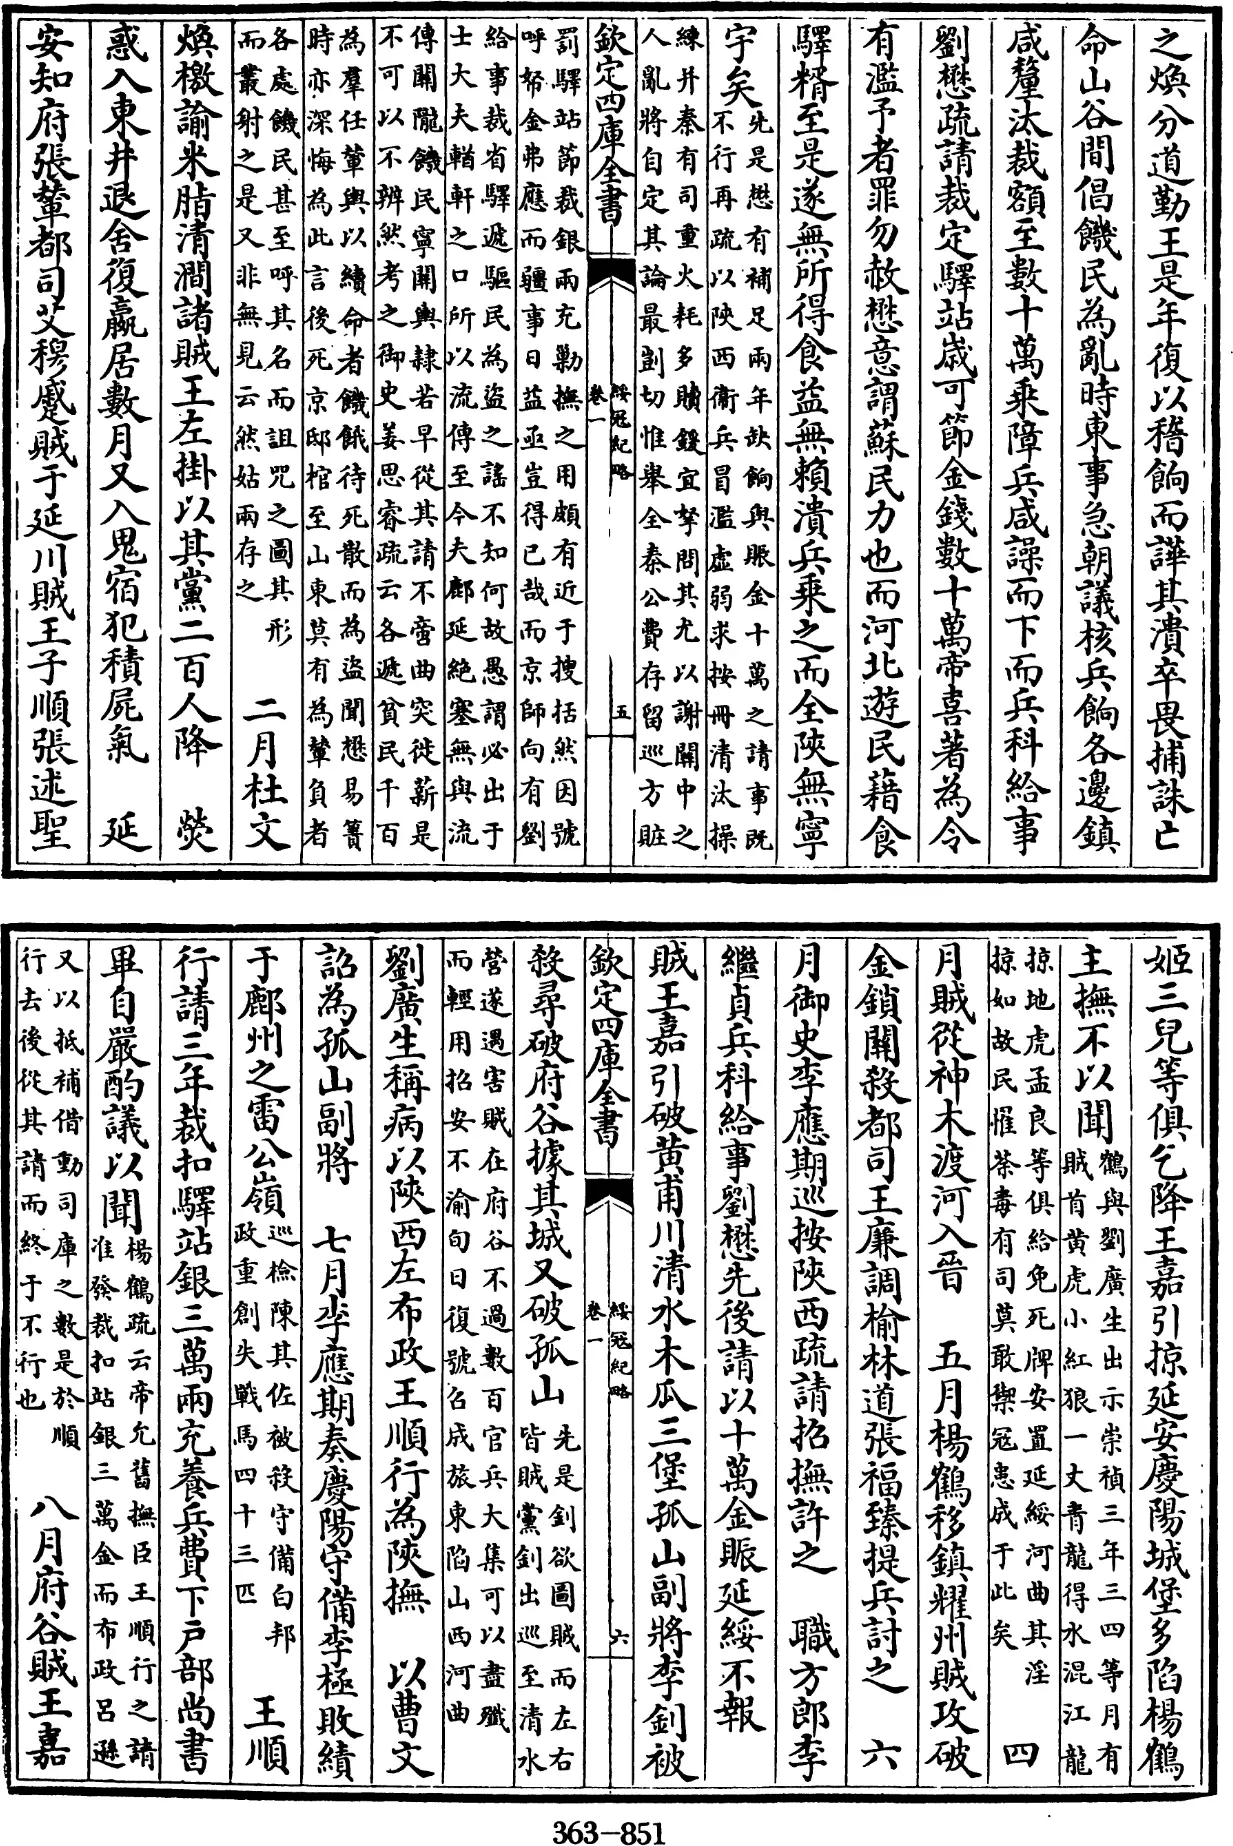 之煥分道勤王是年復以稽餉而譁其潰卒畏捕誅亡
命山谷間倡饑民為亂時東事急朝議核兵餉各邊鎮
咸釐汰裁額至數十萬乘障兵咸譟而下而兵科給事
劉懋疏請裁定驛站歲可節金錢數十萬帝喜著為令
有濫予者罪勿赦懋意謂蘇民力也而河北遊民藉食
驛糈至是遂無所得食益無賴潰兵乘之而全陜無寧
宇矣先是懋有補足兩年缺餉與賑金十萬之請事既
不行再疏以陜西衛兵冒濫虛弱求按冊清汰操
練并秦有司重火耗多贖鍰宜拏問其尤以謝關中之
人亂將自定其論最剴切惟舉全秦公費存留巡方贓
欽定四庫全書
綏寇紀略
卷一
五
罰驛站節裁銀兩充勦撫之用頗有近于搜括然因號
呼帑金弗應而疆事日益亟豈得已哉而京師向有劉
給事裁省驛遞驅民為盜之謠不知何故愚謂必出于
士大夫輶軒之口所以流傳至今夫鄜延絶塞無與流
傳關隴饑民寧關輿隸若早從其請不啻曲突徙薪是
不可以不辨然考之御史姜思睿疏云各遞貧民千百
為羣任輦輿以續命者饑餓待死散而為盜聞懋易簀
時亦深悔為此言後死京邸棺至山東莫有為輦負者
各處饑民甚至呼其名而詛咒之圖其形
而叢射之是又非無見云然姑兩存之
二月杜文
煥檄諭米脂清澗諸賊王左掛以其黨二百人降 熒
惑入東井退舍復贏居數月又入鬼宿犯積屍氣 延
安知府張輦都司艾穆蹙賊于延川賊王子順張述聖
姬三兒等俱乞降王嘉引掠延安慶陽城堡多陷楊鶴
主撫不以聞鶴與劉廣生出示崇禎三年三四等月有
賊首黄虎小紅狼一丈青龍得水混江龍
掠地虎孟良等俱給免死牌安置延綏河曲其淫
掠如故民罹荼毒有司莫敢禦冦患成于此矣
四
月賊從神木渡河入晉 五月楊鶴移鎮耀州賊攻破
金鎖關殺都司王廉調榆林道張福臻提兵討之 六
月御史李應期巡按陜西疏請招撫許之 職方郎李
繼貞兵科給事劉懋先後請以十萬金賑延綏不報
賊王嘉引破黄甫川清水木瓜三堡孤山副將李釗被
欽定四庫全書
綏冦紀略
卷一
六
殺尋破府谷據其城又破孤山先是釗欲圖賊而左右
皆賊黨釗出巡至清水
營遂遇害賊在府谷不過數百官兵大集可以盡殲
而輕用招安不渝旬日復號召成旅東陷山西河曲
劉廣生稱病以陜西左布政王順行為陜撫 以曹文
詔為孤山副將 七月李應期奏慶陽守備李極敗績
于鄜州之雷公嶺巡檢陳其佐被殺守備白邦
政重創失戰馬四十三匹
王順
行請三年裁扣驛站銀三萬兩充養兵費下戸部尚書
畢自嚴酌議以聞楊鶴疏云帝允舊撫臣王順行之請
准發裁扣站銀三萬金而布政呂遜
又以抵補借動司庫之數是於順
行去後從其請而終于不行也
八月府谷賊王嘉
363-851